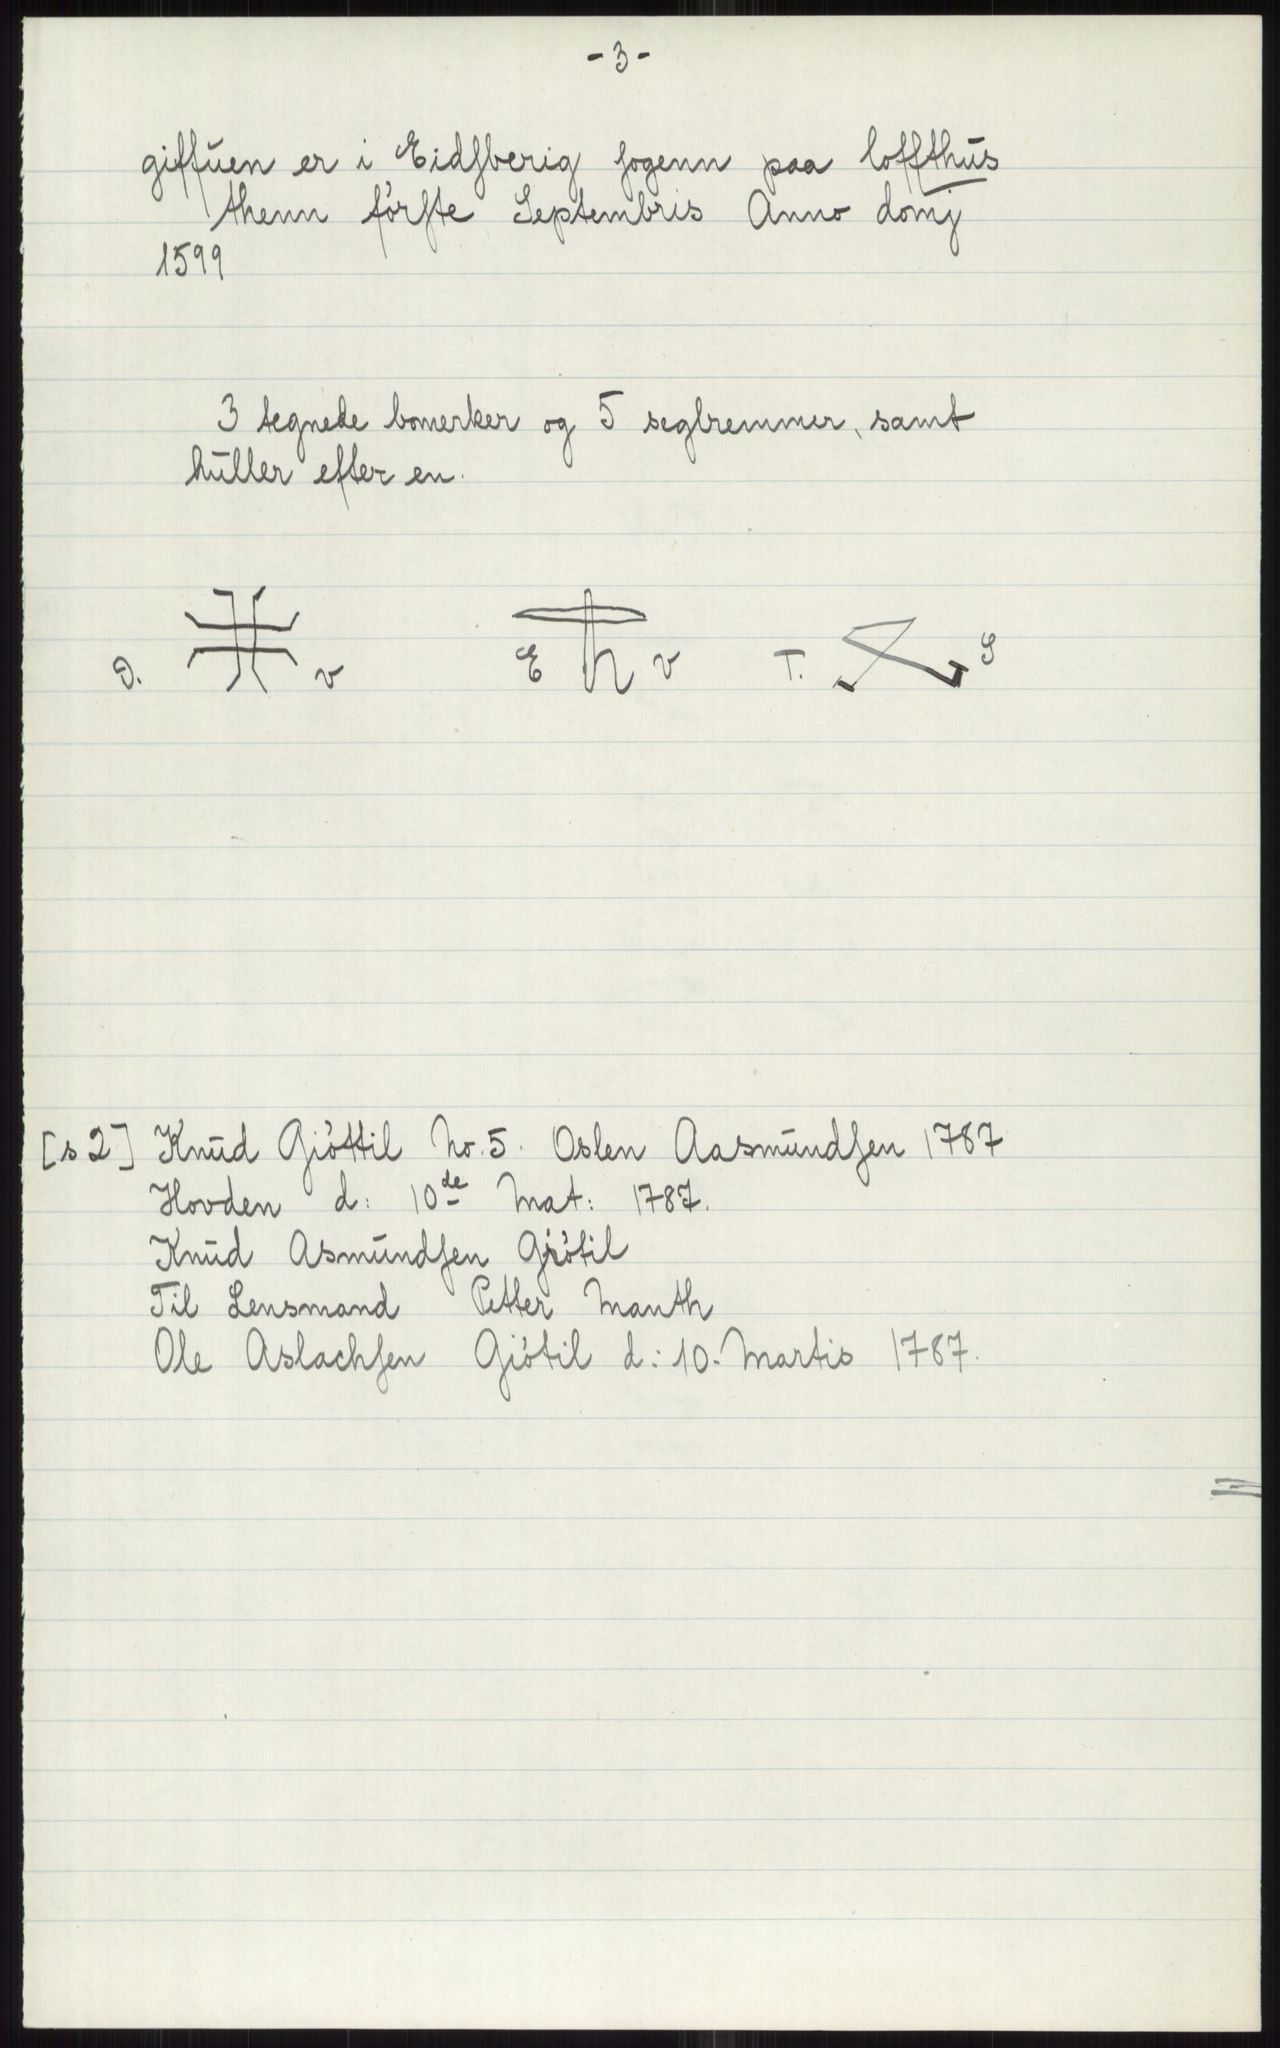 - 3 -
giffuen er i Eidsberig sogenn paa loffthus
thenn første Septembris Anno domj
1599
3 tegnede bomerker og 5 seglremmer, samt
huller efter en.
D. v E v T. S
[s 2] Knud Giøttil No. 5. Oslen Aasmundsen 1787
Hovden d: 10de Mat: 1787.
Knud Asmundsen Giøtil
Til Lensmand Petter Manth
Ole Aslachsen Giøtil d: 10. Martis 1787.